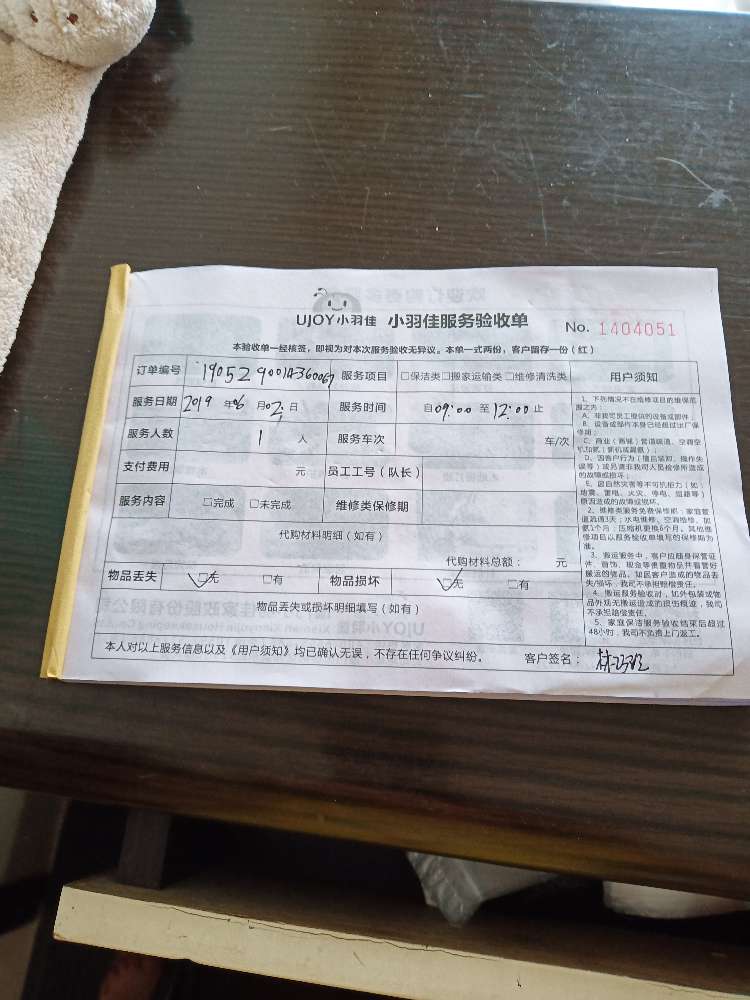 UJOY小羽佳 小羽佳服务验收单 No. 1404051
本验收单一经核签，即视为对本次服务验收无异议。本单一式两份，客户留存一份（红）
订单编号 服务项目 □保洁类□搬家运输类□维修清洗类 用户须知
服务日期 2019 年 06 月 02 日 服务时间 自 09:00 至 12:00 止
服务人数 1 人 服务车次 车/次
支付费用 元 员工工号（队长）
服务内容 □完成 □未完成 维修类保修期
代购材料明细（如有）
代购材料总额： 元
物品丢失 ☑无 □有 物品损坏 ☑无 □有
物品丢失或损坏明细填写（如有）
本人对以上服务信息以及《用户须知》均已确认无误，不存在任何争议纠纷。 客户签名：
1、下列情况不在维修项目的维保范
围之内：
A、非我司员工提供的设备或部件；
B、设备或部件本身已经超过出厂保
修期；
C、商业（商铺）管道疏通、空调空
机加氟（新机或漏氟）；
D、因客户行为（擅自装卸、操作失
误等）或另请非我司人员检修所造成
的故障或损坏；
E、因自然灾害等不可抗拒力（如：
地震、雷电、火灾、停电、短路等）
原因造成的故障或毁坏。
2、维修类服务免费保修期：家庭管
道疏通3天；水电维修、空调维修、加
氟1个月；压缩机更换6个月。其他维
修项目以服务验收单填写的保修期为
准。
3、搬运服务中，客户应随身保管证
件、首饰、现金等贵重物品并看管好
搬运的物品。如因客户造成的物品丢
失/损坏，我司不承担赔偿责任。
4、搬运服务验收时，如外包装或物
品外观无搬运造成的损伤痕迹，我司
不承担赔偿责任。
5、家庭保洁服务验收结束后超过
48小时，我司不负责上门返工。